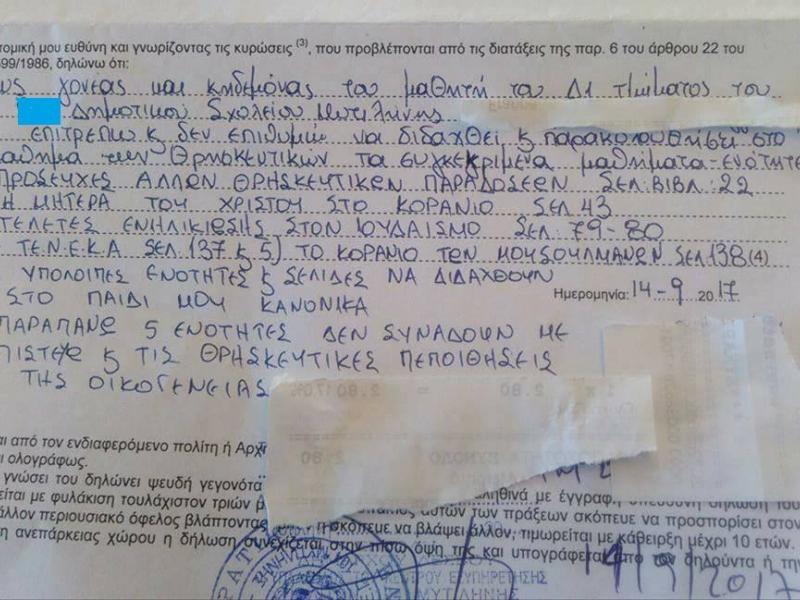 τομική μου ευθύνη και γνωρίζοντας τις κυρώσεις (3), που προβλέπονται από τις διατάξεις της παρ. 6 του άρθρου 22 του
599/1986, δηλώνω ότι:
ως γονέας και κηδεμόνας του μαθητή του Δ1 τμήματος του
Δημοτικού Σχολείου Μυτιλήνης
ΕΠΙΤΡΕΠω & δεν επιθυμώ να διδαχθεί & παρακολουθήσει στο
μάθημα των Θρησκευτικών τα συγκεκριμένα μαθήματα-ενότητε
ΠΡΟΣΕΥΧΕΣ ΑΛΛΩΝ ΘΡΗΣΚΕΥΤΙΚΩΝ ΠΑΡΑΔΟΣΕΩΝ ΣΕΛ:ΒΙΒΛ:22
Η ΜΗΤΕΡΑ ΤΟΥ ΧΡΙΣΤΟΥ ΣΤΟ ΚΟΡΑΝΙΟ ΣΕΛ 43
ΤΕΛΕΤΕΣ ΕΝΗΛΙΚΙΩΣΗΣ ΣΤΟΝ ΙΟΥΔΑΙΣΜΟ ΣΕΛ: 79-80
ΤΕ.Ν.Ε.Κ.Α ΣΕΛ 137 & 5) ΤΟ ΚΟΡΑΝΙΟ ΤΩΝ ΜΟΥΣΟΥΛΜΑΝΩΝ ΣΕΛ 138 (4)
ΥΠΟΛΟΙΠΕΣ ΕΝΟΤΗΤΕΣ & ΣΕΛΙΔΕΣ ΝΑ ΔΙΔΑΧΘΟΥΝ
Ημερομηνία: 14-9 2017
ΣΤΟ ΠΑΙΔΙ ΜΟΥ ΚΑΝΟΝΙΚΑ
ΠΑΡΑΠΑΝΩ 5 ΕΝΟΤΗΤΕΣ ΔΕΝ ΣΥΝΑΔΟΥΝ ΜΕ
& ΤΙΣ ΘΡΗΣΚΕΥΤΙΚΕΣ ΠΕΠΟΙΘΗΣΕΙΣ
ΤΗΣ ΟΙΚΟΓΕΝΕΙΑΣ
αι από τον ενδιαφερόμενο πολίτη ή Αρχ
ι ολογράφως.
γνώσει του δηλώνει ψευδή γεγονότα
είται με φυλάκιση τουλάχιστον τριών
αυτών των πράξεων σκόπευε να προσπορίσει στον
άλλον περιουσιακό όφελος βλάπτοντας
ή σκόπευε να βλάψει άλλον, τιμωρείται με κάθειρξη μέχρι 10 ετών.
η ανεπάρκειας χώρου η δήλωση συνεχίζεται στην πίσω όψη της και υπογράφεται από τον δηλούντα ή την
ΕΞΥΠΗΡΕΤΗΣΗΣ
ΜΥΤΙΛΗΝΗΣ
14/9/2017